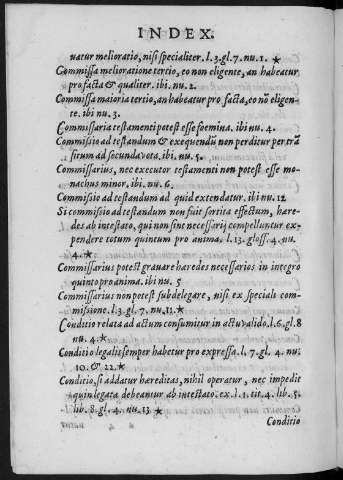 INDEX.
vatur melioratio, nisi specialiter. l.3.gl.7.nu.1. ★
Commissa melioratione tertio, eo non eligente, an habeatur
pro facta & qualiter. ibi nu.2.
Commissa maioria tertio, an habeatur pro facta, eo nõ eligen-
te. ibi nu.3.
Commissaria testamenti potest esse foemina. ibi nu. 4.
Commissio ad testandum & exequendũ non perditur per trã
situm ad secunda vota. ibi nu. 5.
Commissarius, nec executor testamenti non potest esse mo-
nachus minor. ibi nu. 6.
Commissio ad testandum ad quid extendatur. ibi nu. 12
Si commissio ad testandum non fuit sortita effectum, hære-
des ab intestato, qui non sint necessarij compelluntur ex-
pendere totum quintum pro anima. l.13. gloss. 4. nu.
4. ★
Commissarius potest grauare hæredes necessarios in integro
quinto pro anima. ibi nu. 5
Commissarius non potest subdelegare, nisi ex speciali com-
missione. l.3.gl.7.nu.11. ★
Conditio relata ad actum consumitur in actu valido. l.6.gl.8
nu. 4. ★
Conditio legalis semper habetur pro expressa. l.7.gl. 4. nu.
10. & 22. ★
Conditio, si addatur hæreditas, nihil operatur, nec impedit
quin legata debeantur ab intestato. ex. l.1. tit. 4. lib. 5.
lib. 8. gl. 4. nu. 13. ★
Conditio